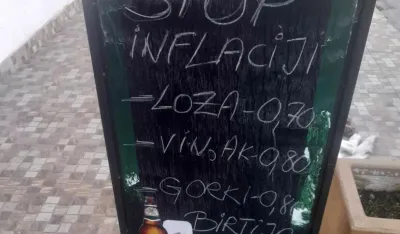 STOP
INFLACIJI
-LOZA-0,70
-VINJAK-0,80
-GORKI-0,8